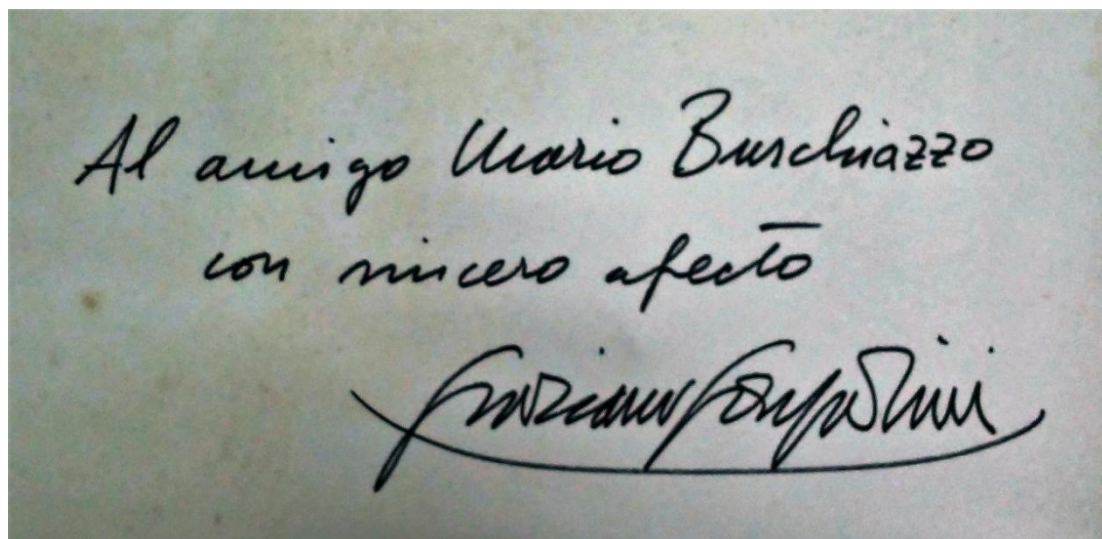 Al amigo Mario Buschiazzo
con sincero afecto
Graziano Gasparini